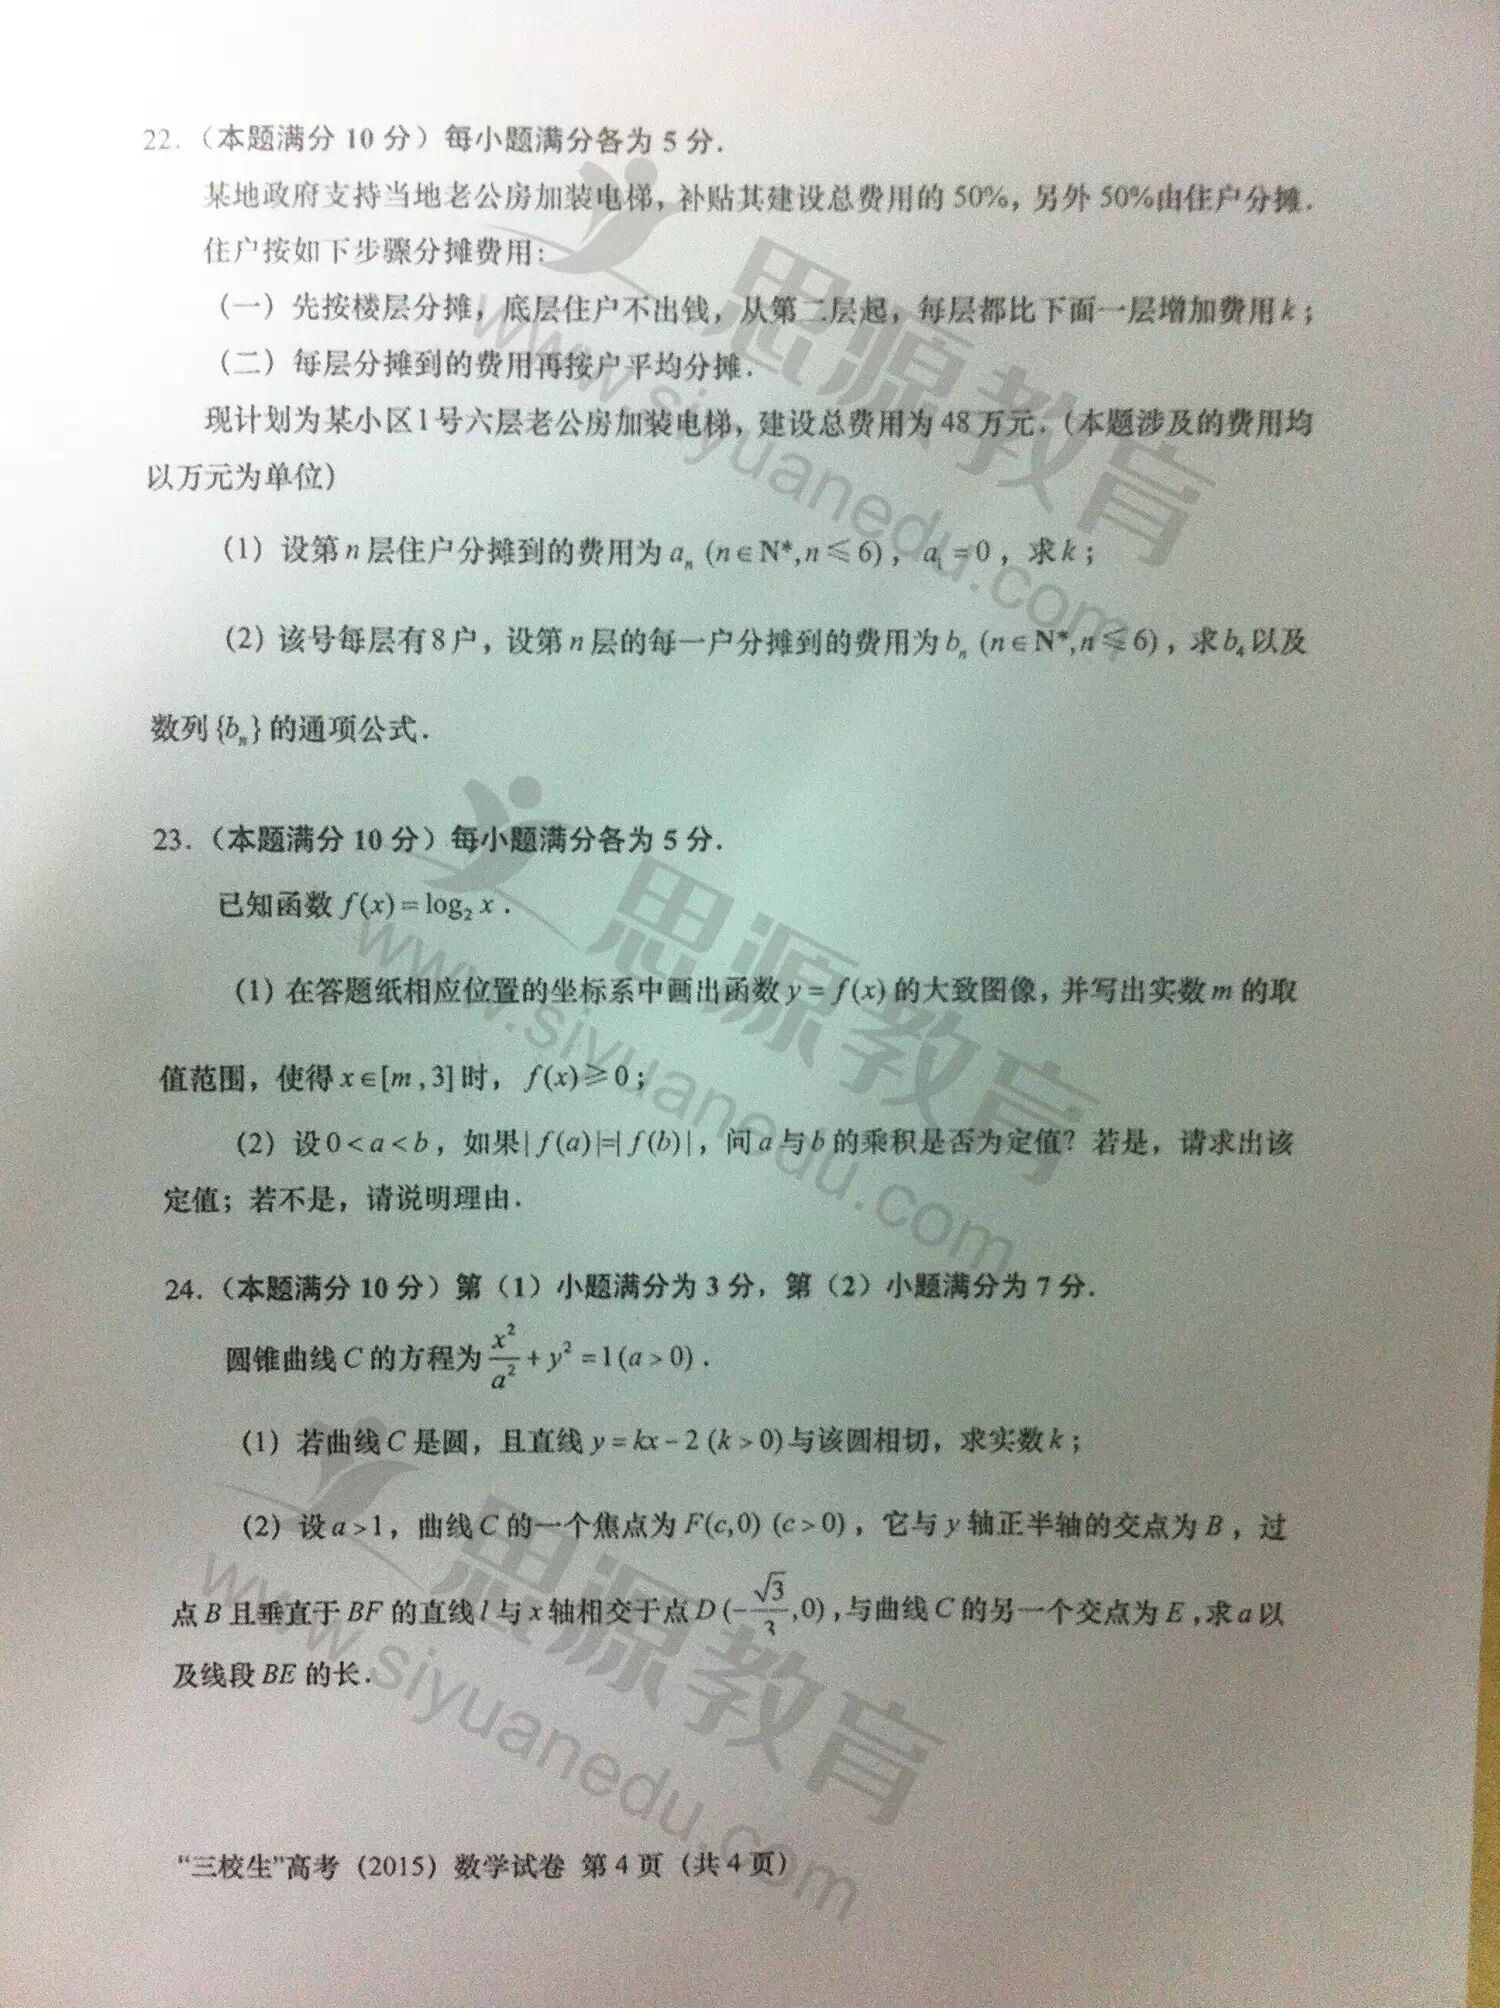 22.（本题满分 10 分）每小题满分各为 5 分.
某地政府支持当地老公房加装电梯，补贴其建设总费用的 50%，另外 50%由住户分摊.
住户按如下步骤分摊费用：
（一）先按楼层分摊，底层住户不出钱，从第二层起，每层都比下面一层增加费用 k；
（二）每层分摊到的费用再按户平均分摊.
现计划为某小区1号六层老公房加装电梯，建设总费用为 48 万元.（本题涉及的费用均
以万元为单位）
（1）设第 n 层住户分摊到的费用为 aₙ (n∈N*,n≤6)，a₁=0，求 k；
（2）该号每层有 8 户，设第 n 层的每一户分摊到的费用为 bₙ (n∈N*,n≤6)，求 b₄ 以及
数列{bₙ}的通项公式.
23.（本题满分 10 分）每小题满分各为 5 分.
已知函数 f(x)=log₂ x .
（1）在答题纸相应位置的坐标系中画出函数 y=f(x) 的大致图像，并写出实数 m 的取
值范围，使得 x∈[m,3] 时，f(x)≥0；
（2）设 0<a<b，如果|f(a)|=|f(b)|，问 a 与 b 的乘积是否为定值？若是，请求出该
定值；若不是，请说明理由.
24.（本题满分 10 分）第（1）小题满分为 3 分，第（2）小题满分为 7 分.
圆锥曲线 C 的方程为 x²/a² + y² =1(a>0) .
（1）若曲线 C 是圆，且直线 y=kx-2 (k>0)与该圆相切，求实数 k；
（2）设 a>1，曲线 C 的一个焦点为 F(c,0) (c>0)，它与 y 轴正半轴的交点为 B，过
点 B 且垂直于 BF 的直线 l 与 x 轴相交于点 D(-√3/3,0),与曲线 C 的另一个交点为 E,求 a 以
及线段 BE 的长.
“三校生”高考（2015）数学试卷 第 4 页（共 4 页）
思源教育
www.siyuanedu.com
思源教育
www.siyuanedu.com
思源教育
www.siyuanedu.com